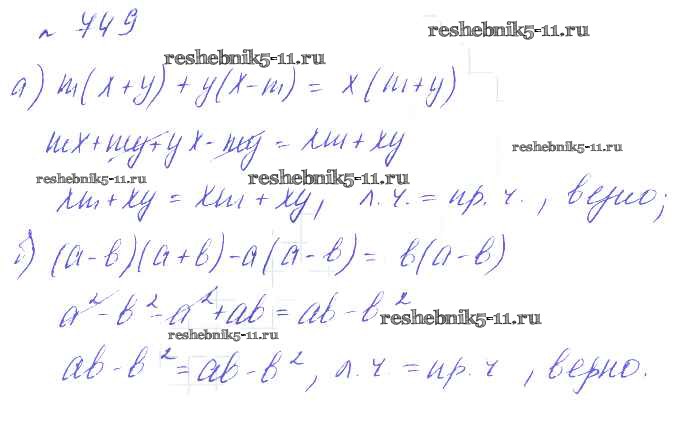 № 749
reshebnik5-11.ru
reshebnik5-11.ru
а) m(x+y)+y(x-m)= x(m+y)
mx+my+yx-my=xm+xy
reshebnik5-11.ru
reshebnik5-11.ru
reshebnik5-11.ru
xm+xy=xm+xy, л.ч.=пр.ч., верно;
б) (a-b)(a+b)-a(a-b)= b(a-b)
a²-b²-a²+ab=ab-b²
reshebnik5-11.ru
reshebnik5-11.ru
ab-b²=ab-b², л.ч.=пр.ч, верно.